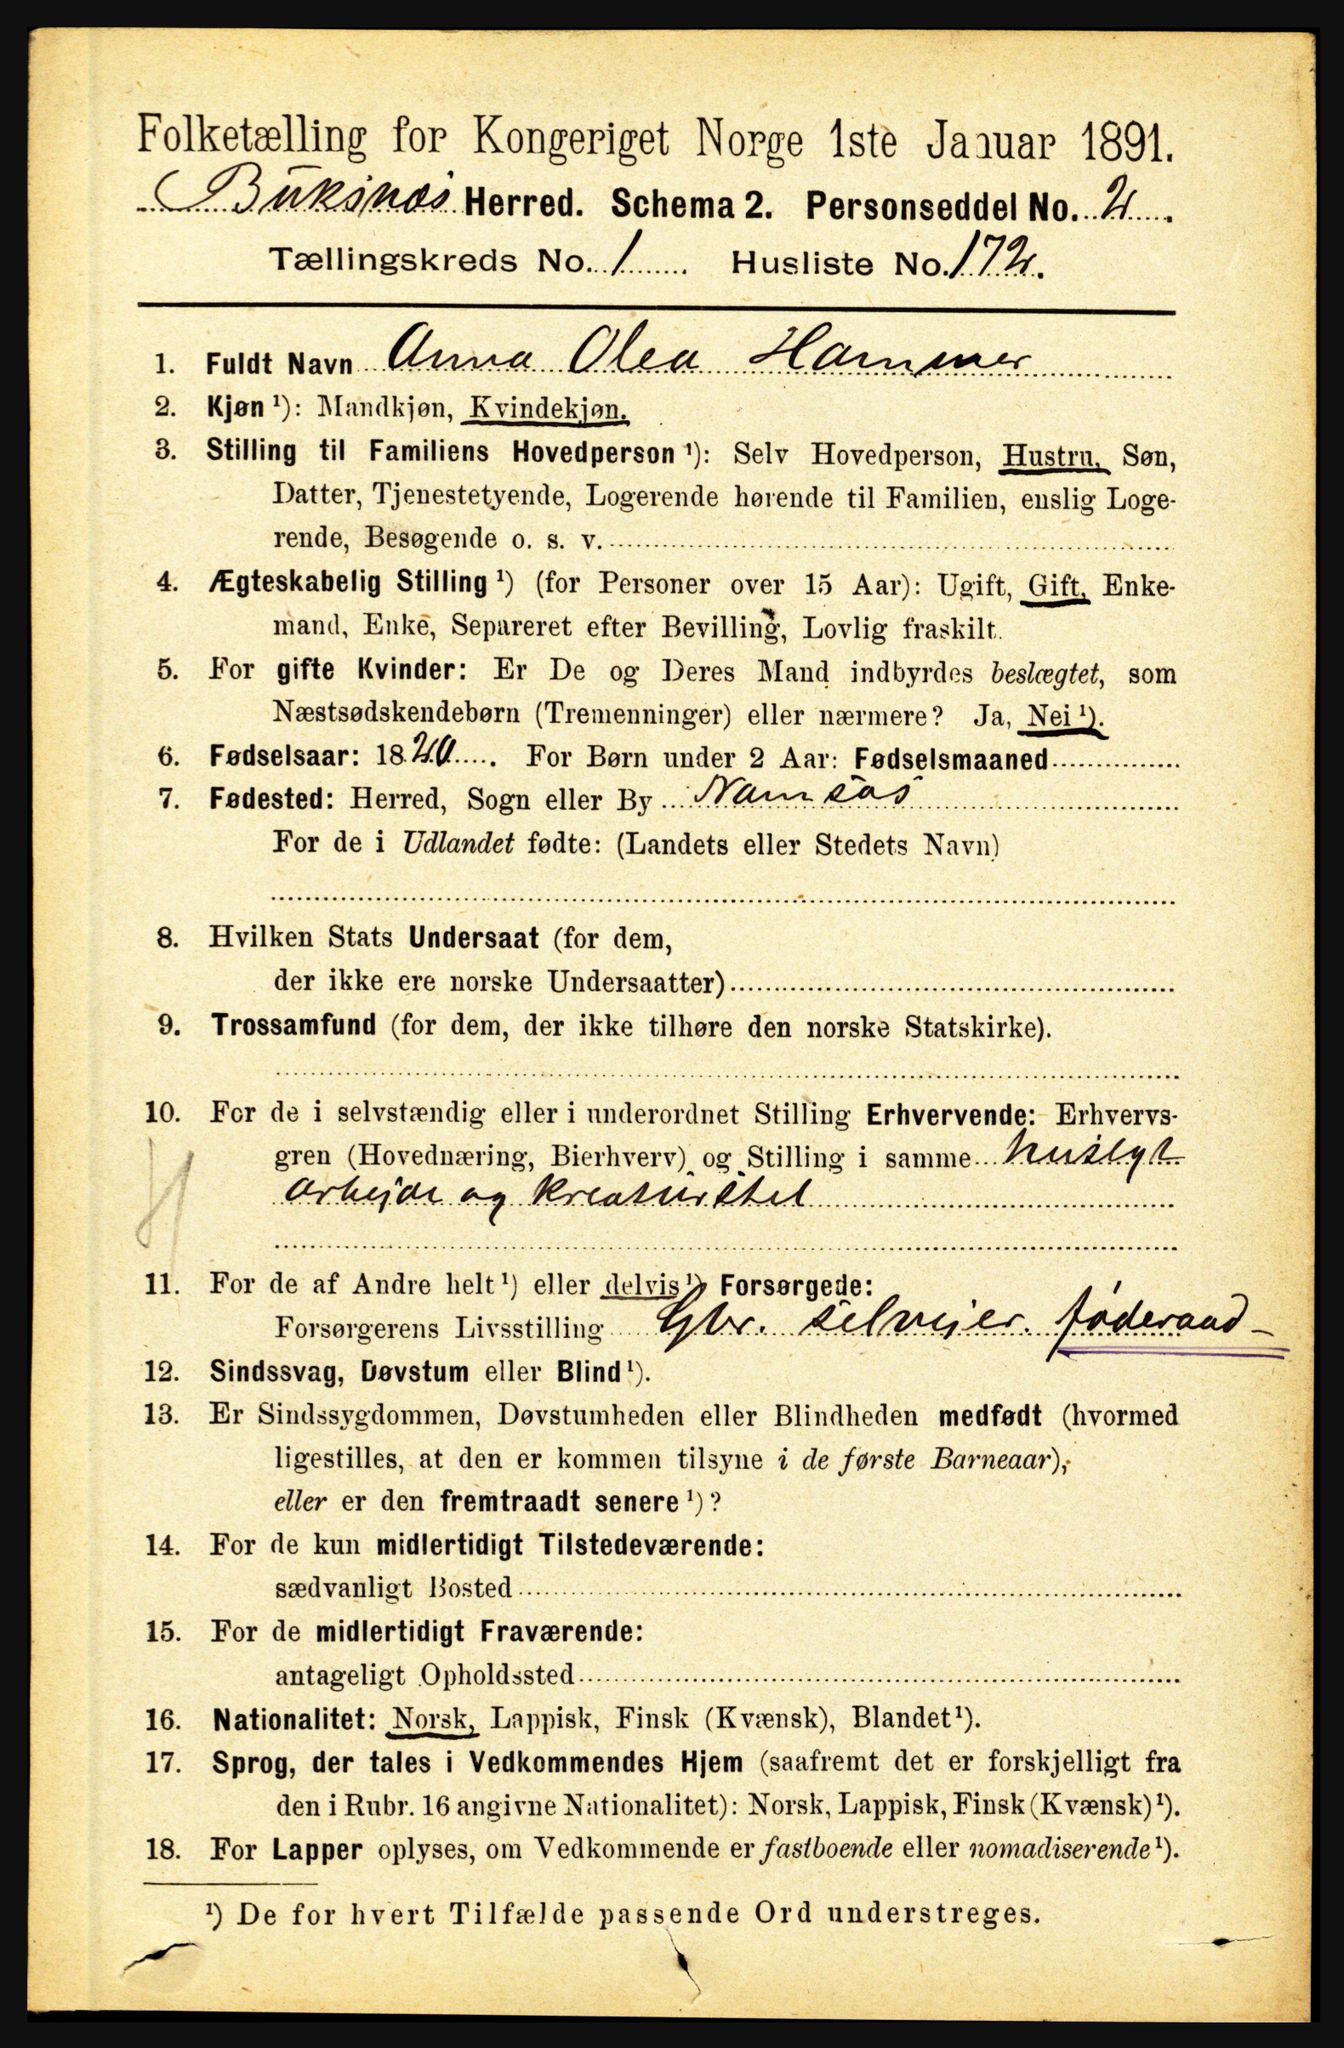 Folketælling for Kongeriget Norge 1ste Januar 1891.
Buksnæs Herred. Schema 2. Personseddel No. 2.
Tællingskreds No. 1 Husliste No. 172.
1. Fuldt Navn Anna Olea Hammer
2. Kjøn ¹): Mandkjøn, Kvindekjøn.
3. Stilling til Familiens Hovedperson ¹): Selv Hovedperson, Hustru, Søn,
Datter, Tjenestetyende, Logerende hørende til Familien, enslig Loge-
rende, Besøgende o. s. v.
4. Ægteskabelig Stilling ¹) (for Personer over 15 Aar): Ugift, Gift, Enke-
mand, Enke, Separeret efter Bevilling, Lovlig fraskilt.
5. For gifte Kvinder: Er De og Deres Mand indbyrdes beslægtet, som
Næstsødskendebørn (Tremenninger) eller nærmere? Ja, Nei ¹).
6. Fødselsaar: 1820. For Børn under 2 Aar: Fødselsmaaned
7. Fødested: Herred, Sogn eller By Namsos
For de i Udlandet fødte: (Landets eller Stedets Navn)
8. Hvilken Stats Undersaat (for dem,
der ikke ere norske Undersaatter)
9. Trossamfund (for dem, der ikke tilhøre den norske Statskirke).
10. For de i selvstændig eller i underordnet Stilling Erhvervende: Erhvervs-
gren (Hovednæring, Bierhverv) og Stilling i samme huslgt
arbejde og kreaturstel
11. For de af Andre helt ¹) eller delvis ¹) Forsørgede:
Forsørgerens Livsstilling Gbr. selvejer. føderaad-
12. Sindssvag, Døvstum eller Blind ¹).
13. Er Sindssygdommen, Døvstumheden eller Blindheden medfødt (hvormed
ligestilles, at den er kommen tilsyne i de første Barneaar),
eller er den fremtraadt senere ¹)?
14. For de kun midlertidigt Tilstedeværende:
sædvanligt Bosted
15. For de midlertidigt Fraværende:
antageligt Opholdssted
16. Nationalitet: Norsk, Lappisk, Finsk (Kvænsk), Blandet ¹).
17. Sprog, der tales i Vedkommendes Hjem (saafremt det er forskjelligt fra
den i Rubr. 16 angivne Nationalitet): Norsk, Lappisk, Finsk (Kvænsk) ¹).
18. For Lapper oplyses, om Vedkommende er fastboende eller nomadiserende ¹).
¹) De for hvert Tilfælde passende Ord understreges.